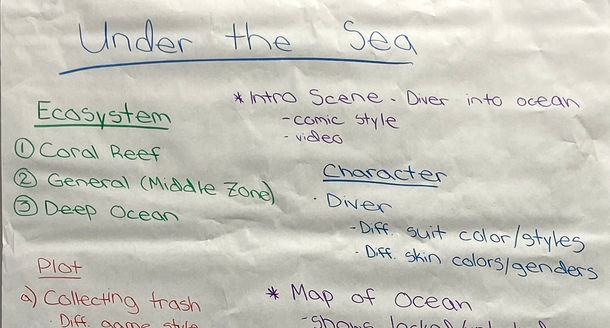 Under the Sea
* Intro Scene - Diver into ocean
- comic style
- video
Ecosystem
① Coral Reef
② General (Middle Zone)
③ Deep Ocean
Character
· Diver
- Diff. suit color/styles
- Diff. skin colors/genders
Plot
a) Collecting trash
· Diff. game style
* Map of Ocean
- shows